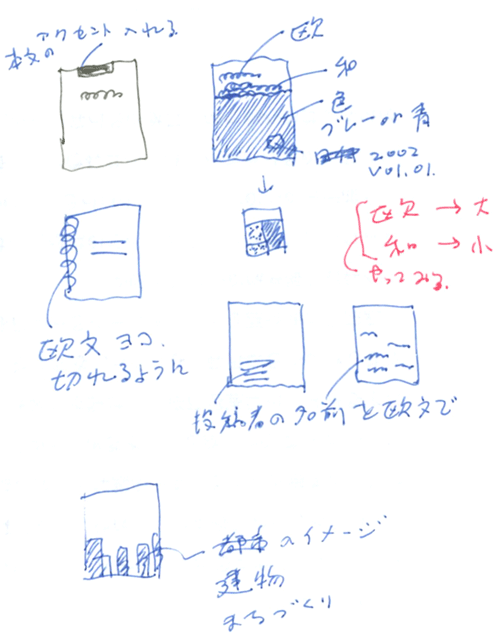 アクセント入れる
本文の
欧
和
色
グレーor青
2002
vol.01.
欧 → 大
和 → 小
やってみる.
欧文ヨコ.
切れるように
投稿者の名前を欧文で
都市のイメージ
建物
まちづくり